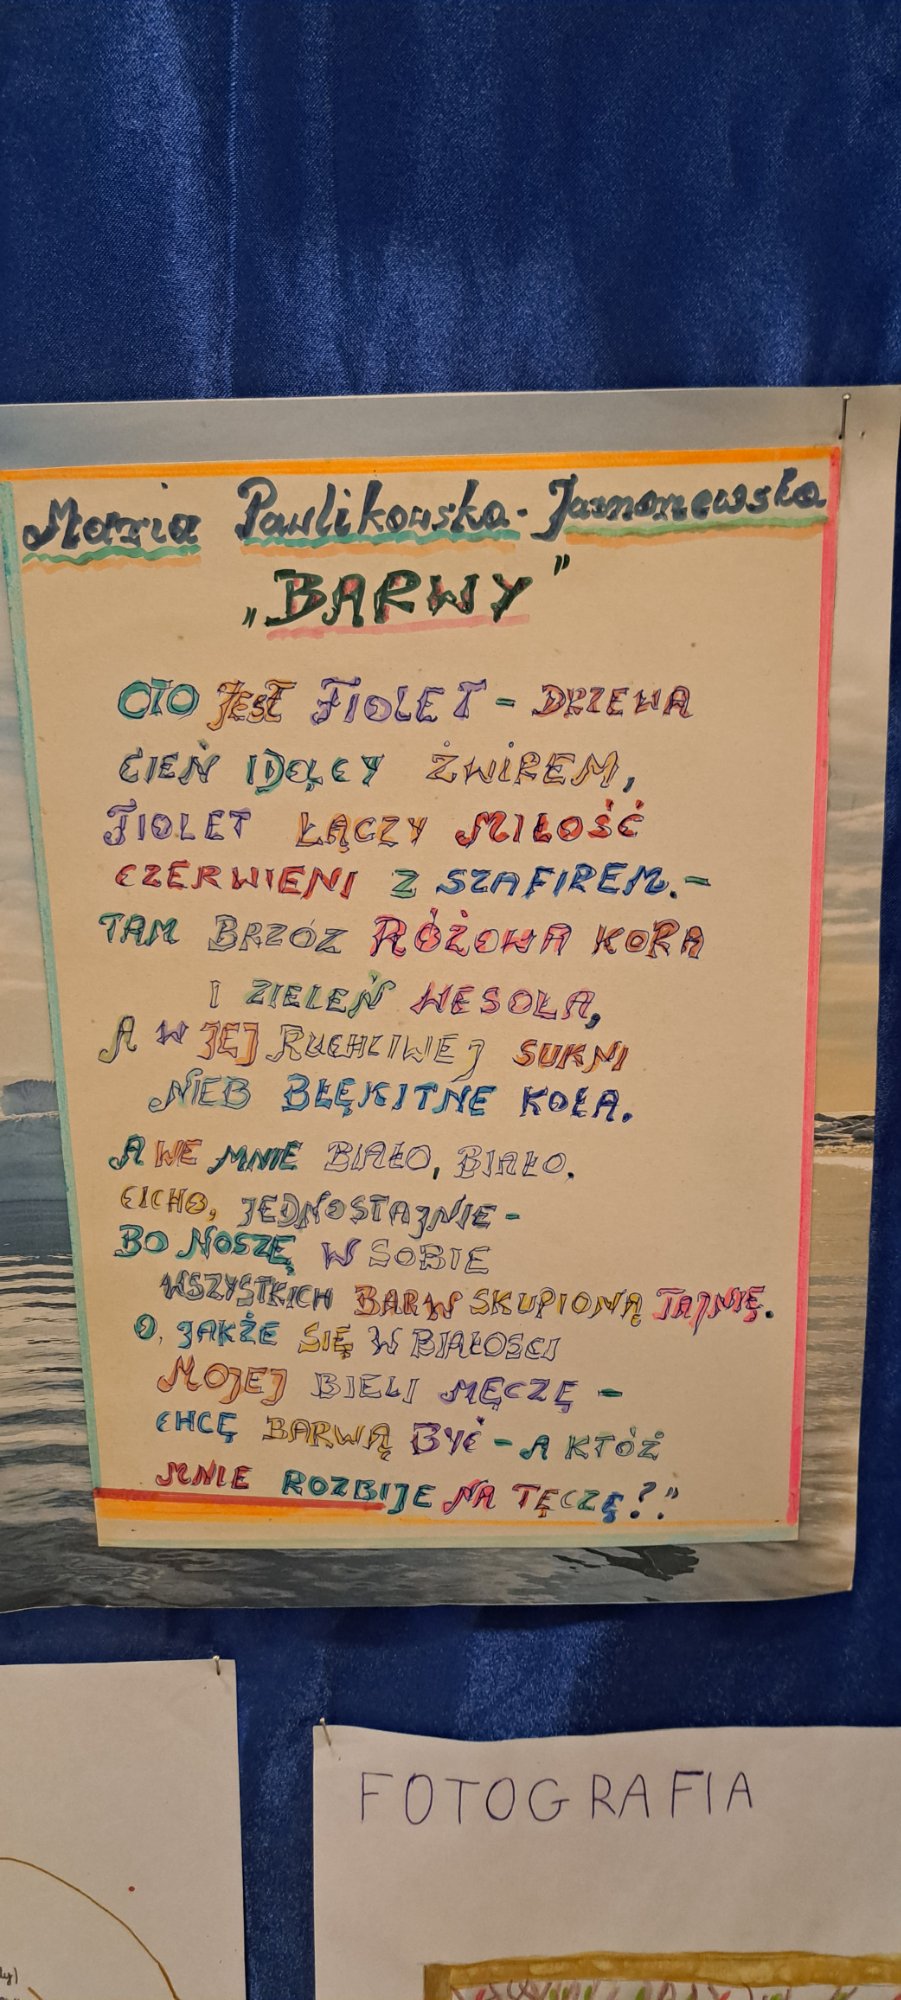 Maria Pawlikowska-Jasnorzewska
„BARWY”
OTO JEST FIOLET - DRZEWA
CIEŃ IDĄCY ŻWIREM,
FIOLET ŁĄCZY MIŁOŚĆ
CZERWIENI Z SZAFIREM.-
TAM BRZÓZ RÓŻOWA KORA
I ZIELEŃ WESOŁA,
A W JEJ RUCHLIWEJ SUKNI
NIEB BŁĘKITNE KOŁA.
A WE MNIE BIAŁO, BIAŁO.
CICHO, JEDNOSTAJNIE -
BO NOSZĘ W SOBIE
WSZYSTKICH BARW SKUPIONĄ TAJNIĘ.
O, JAKŻE SIĘ W BIAŁOŚCI
MOJEJ BIELI MĘCZĘ -
CHCĘ BARWĄ BYĆ - A KTÓŻ
MNIE ROZBIJE NA TĘCZĘ?”
FOTOGRAFIA